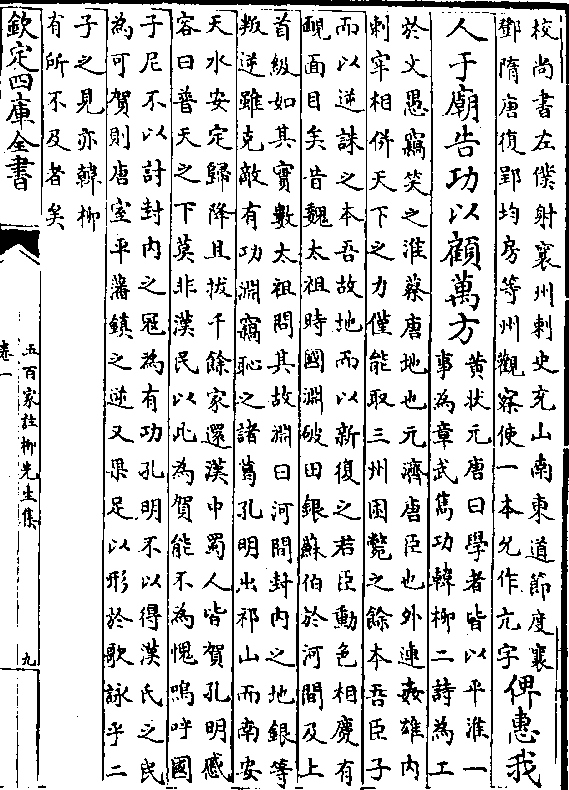 校尚書左僕射襄州刺史充山南東道節度襄
鄧隋唐復郢均房等州觀察使一本允作亢字
俾惠我
人于廟告功以顧萬方
黄状元唐曰學者皆以平淮一
事為章武雋功韓柳二詩為工
於文愚竊笑之淮蔡唐地也元濟唐臣也外連姦雄内
刺宰相併天下之力僅能取三州困斃之餘本吾臣子
而以逆誅之本吾故地而以新復之君臣動色相慶有
靦面目矣昔魏太祖時國淵破田銀蘇伯於河間及上
首級如其實數太祖問其故淵曰河間封内之地銀等
叛逆雖克敵有功淵竊恥之諸葛孔明出祁山而南安
天水安定歸降且拔千餘家還漢中蜀人皆賀孔明慼
容曰普天之下莫非漢民以此為賀能不為愧嗚呼國
子尼不以討封内之冦為有功孔明不以得漢氏之民
為可賀則唐室平藩鎮之逆又果足以形於歌詠乎二
子之見亦韓柳
有所不及者矣
欽定四庫全書
五百家註柳先生集
卷一
九